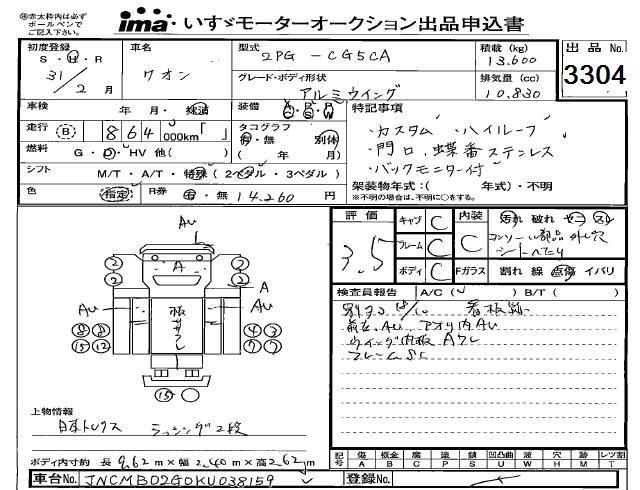 ㊟赤太枠内は必ず
ボールペンで
ご記入下さい。
ima いすゞモーターオークション出品申込書
初度登録 S・H・R 31/2月
車名 クオン
型式 2PG-CG5CA
グレード・ボディ形状 アルミウイング
積載(kg) 13,600
排気量(cc) 10,830
出品No. 3304
車検 年・月・抹済
装備 A/C P/S P/W
特記事項
・カスタム ・ハイルーフ
・門口、蝶番ステンレス
・バックモニター付
走行 B 864000km「 」
タコグラフ 有・無 別体
( 年 月)
燃料 G・D・HV 他( )
シフト M/T・A/T・特殊(2ペダル・3ペダル)
架装物年式:( 年式)・不明
※不明の場合は、不明に○をする。
色 指定 R券 有・無 14,260円
評価 3.5
キャブ C
フレーム C
ボディ C
内装 C 汚れ 破れ ヤニ スレ
コンソール部品外し穴
シートへたり
Fガラス 割れ 線 点傷 イバリ
検査員報告 A/C( ) B/T( )
前左Au、アオリ内Au
ウイング内板Aワレ
フレームSC
Au
A
A
Au
Au
2 2
2 2
8 8 4 3
15 12 7 7
15
上物情報
日本トレクス ラッシング2段
ボディ内寸約 長9.62m×幅2.40m×高2.62m
記号 傷A 板金B 腐C 塗P 錆S 凹凸曲U 波W 穴H 跡M レツ割T
車台No. JNCMB02G0KU038159
登録No.